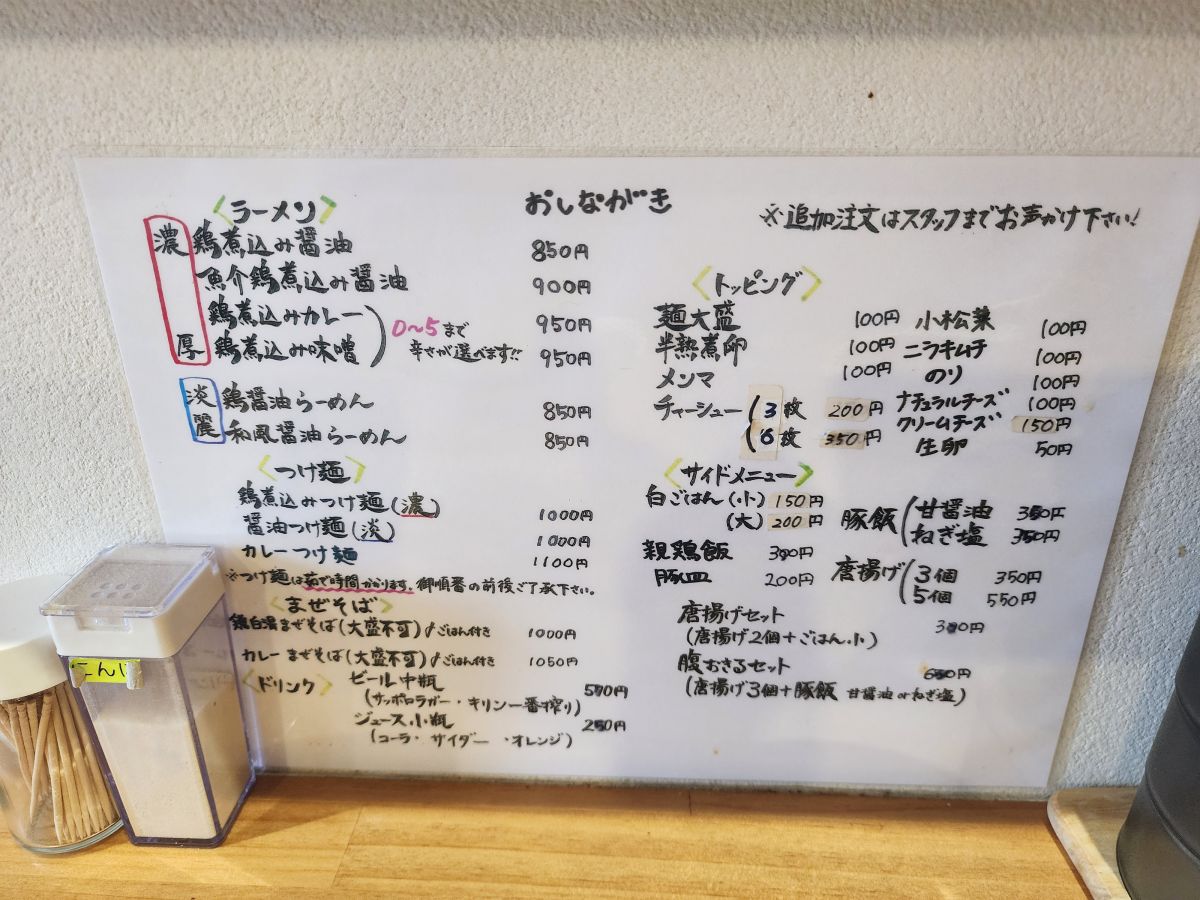 おしながき
※追加注文はスタッフまでお声かけ下さい!
〈ラーメン〉
濃厚
鶏煮込み醤油 850円
魚介鶏煮込み醤油 900円
鶏煮込みカレー 950円
鶏煮込み味噌 950円
0〜5まで
辛さが選べます!!
淡麗
鶏醤油らーめん 850円
和風醤油らーめん 850円
〈つけ麺〉
鶏煮込みつけ麺(濃) 1000円
醤油つけ麺(淡) 1000円
カレーつけ麺 1100円
※つけ麺は茹で時間かかります。御順番の前後ご了承下さい。
〈まぜそば〉
鶏白湯まぜそば(大盛不可) ごはん付き 1000円
カレーまぜそば(大盛不可) ごはん付き 1050円
〈ドリンク〉
ビール中瓶 570円
(サッポロラガー・キリン一番搾り)
ジュース小瓶 250円
(コーラ・サイダー・オレンジ)
〈トッピング〉
麺大盛 100円
半熟煮卵 100円
メンマ 100円
チャーシュー(3枚 200円
(6枚 350円
小松菜 100円
ニラキムチ 100円
のり 100円
ナチュラルチーズ 100円
クリームチーズ 150円
生卵 50円
〈サイドメニュー〉
白ごはん(小) 150円
(大) 200円
親鶏飯
豚皿 200円
豚飯(甘醤油 350円
ねぎ塩 350円
唐揚げ(3個 350円
5個 550円
唐揚げセット
(唐揚げ2個+ごはん小)
腹おさるセット
(唐揚げ3個+豚飯 甘醤油orねぎ塩)